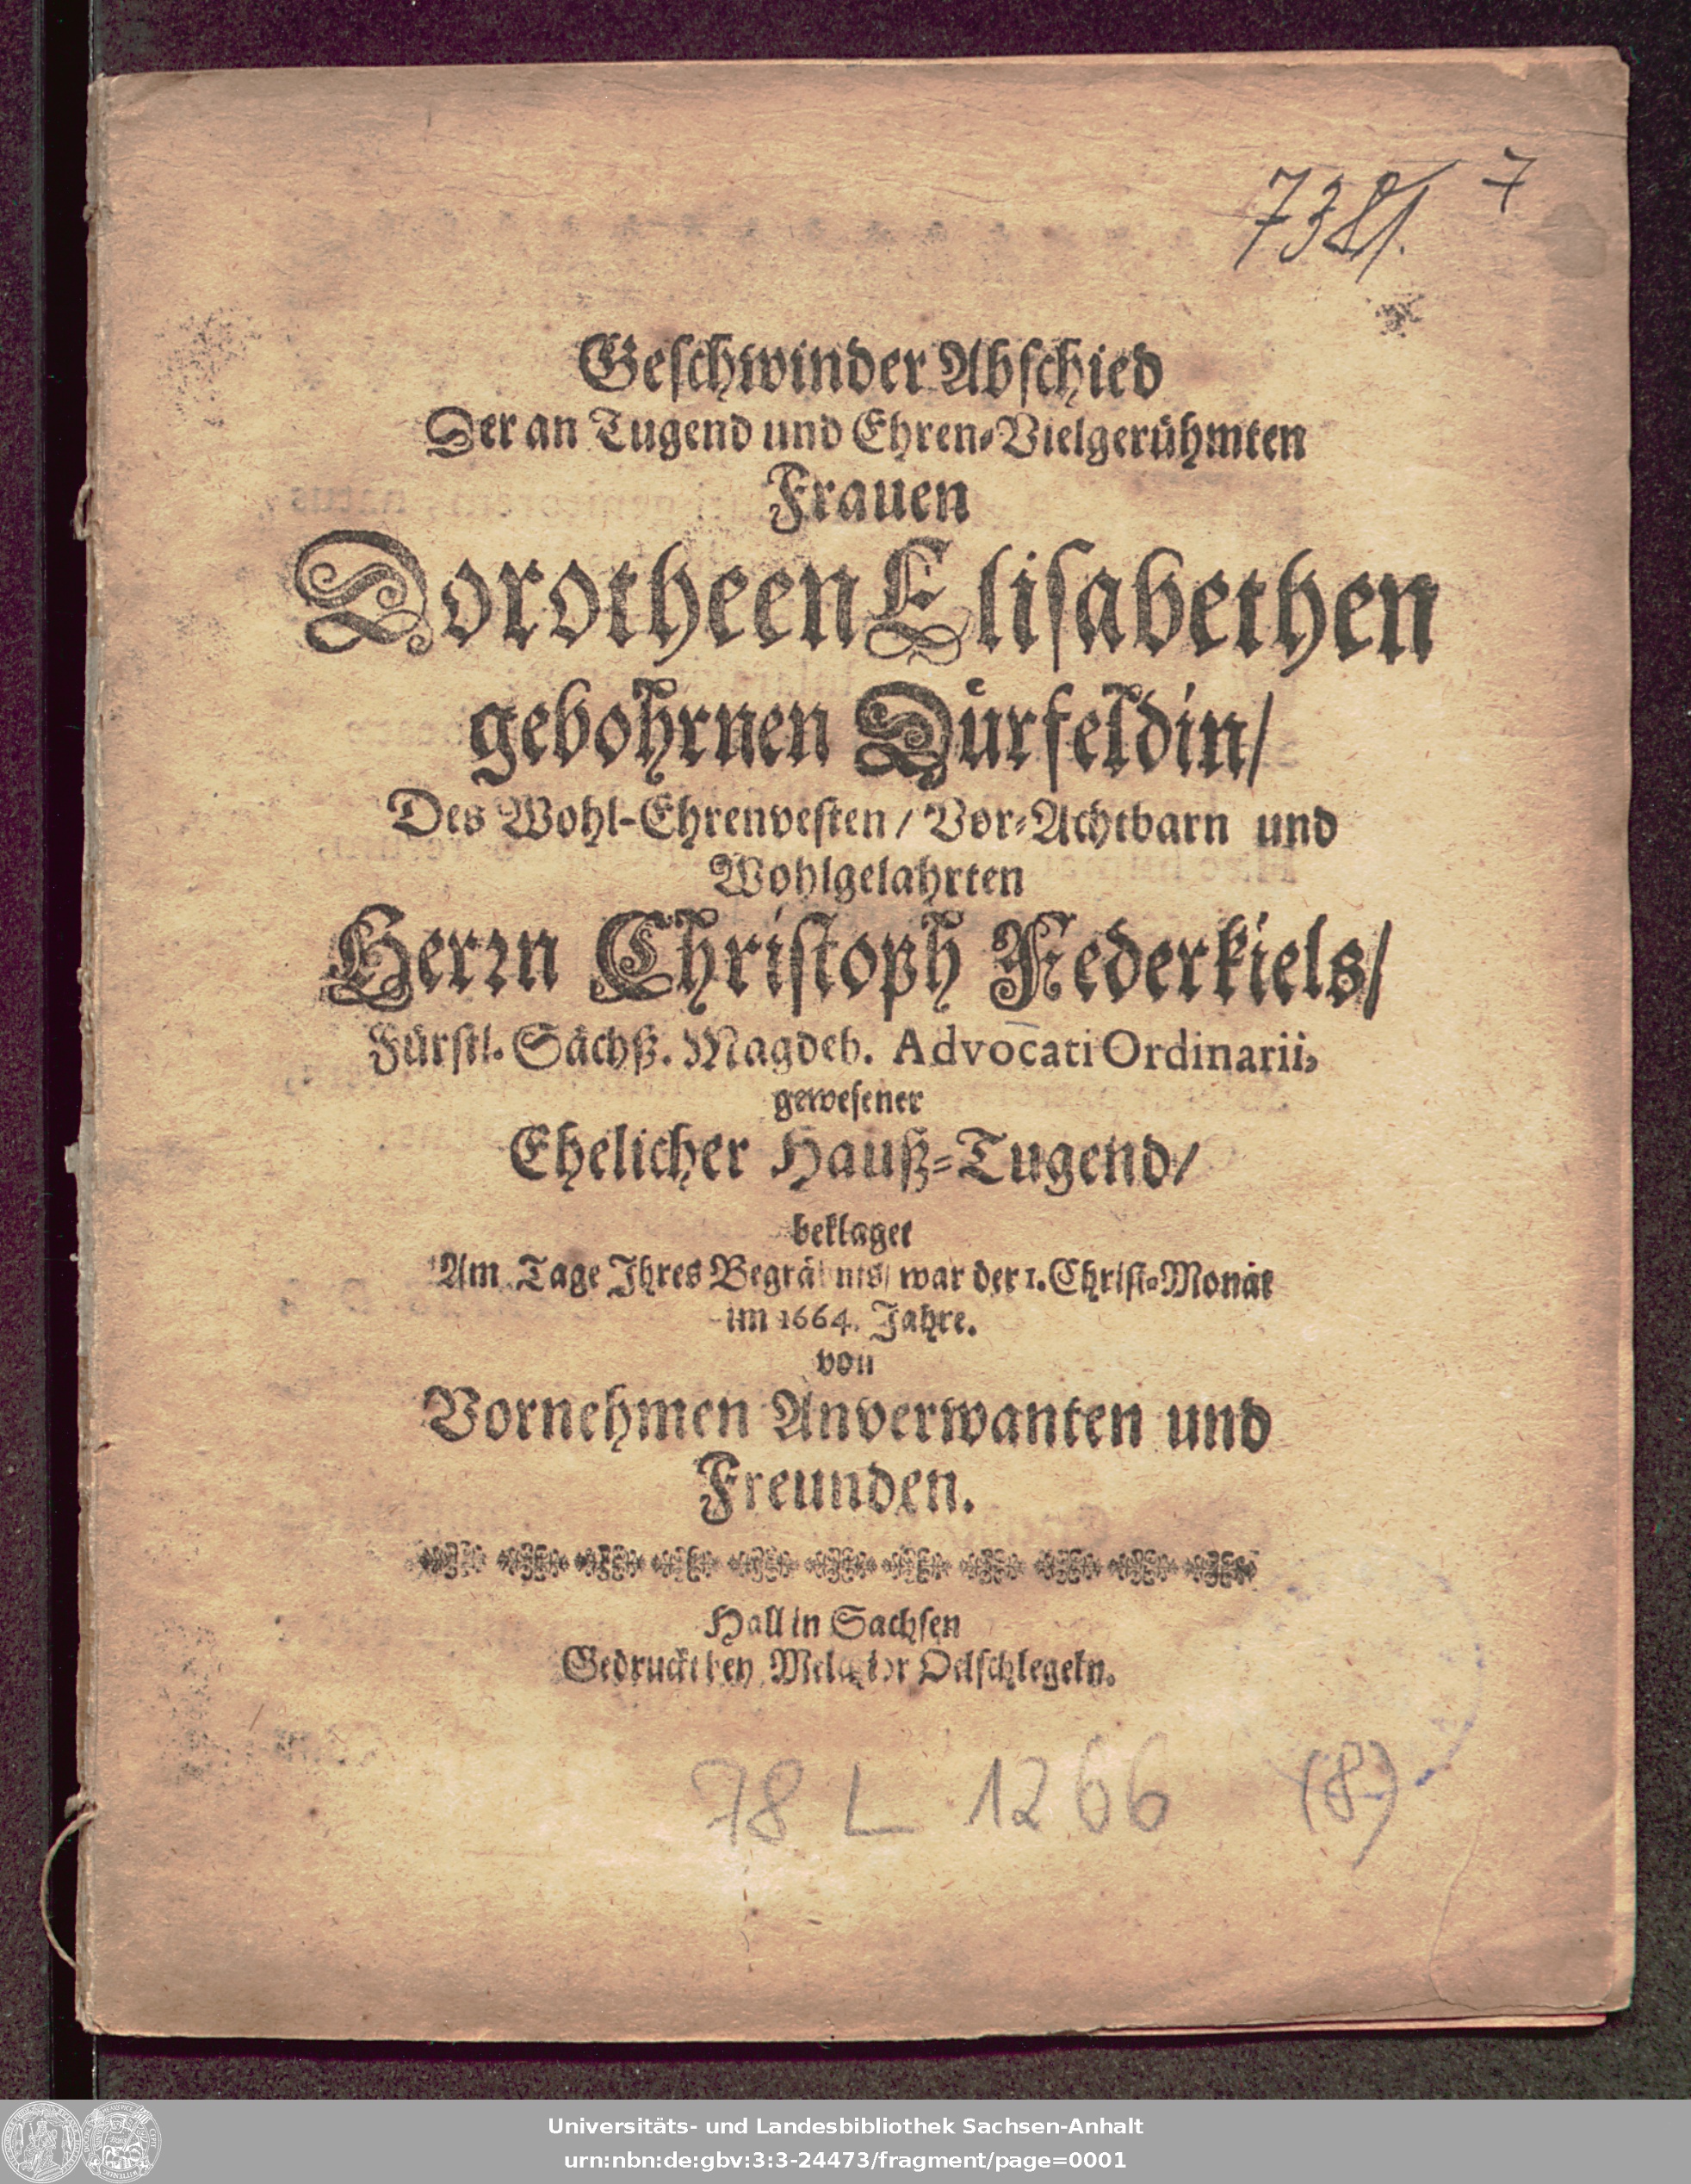 7381. 7
Geschwinder Abschied
Der an Tugend und Ehren-Vielgerühmten
Frauen
Dorotheen Elisabethen
gebohrnen Dürfeldin/
Des Wohl-Ehrenvesten/ Vor-Achtbarn und
Wohlgelahrten
Herrn Christoph Federkiels/
Fürstl. Sächß. Magdeb. Advocati Ordinarii,
gewesener
Ehelicher Hauß-Tugend/
beklaget
Am Tage Ihres Begräbnis/ war der 1. Christ-Monat
im 1664. Jahre.
von
Vornehmen Anverwanten und
Freunden.
Hall in Sachsen
Gedruckt bey Melchior Oelschlegeln.
78 L 1266 (8)
Universitäts- und Landesbibliothek Sachsen-Anhalt
urn:nbn:de:gbv:3:3-24473/fragment/page=0001